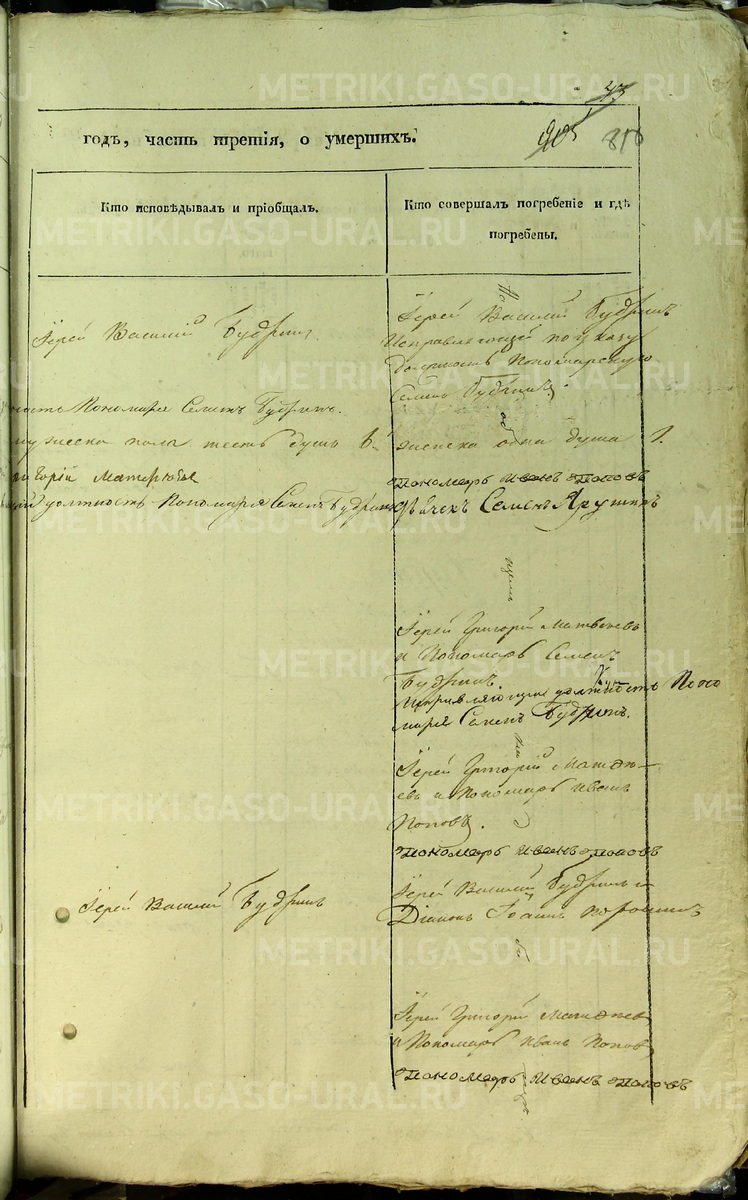 43
205 810
годъ, часть третія, о умершихъ.
Кто исповѣдывалъ и пріобщалъ.
Кто совершалъ погребеніе и гдѣ
погребены.
Іерей Василій Будринъ
Іерей Василій Будринъ
Исправляющій по указу
должность Пономарскую
Семенъ Будринъ
ность Пономаря Семенъ Будринъ.
мужеска пола шесть душъ 6.
женска одна душа 1.
Григорій Матвѣевъ
Пономарь Иванъ Поповъ
должность Пономаря Семенъ Будринъ
дьячекъ Семенъ Ярутинъ
Іерей Григорій Матвѣевъ
и Пономарь Семенъ
Будринъ
Исправляющій должность Поно
маря Семенъ Будринъ.
Іерей Григорій Матвѣ-
евъ и Пономарь Иванъ
Поповъ.
Пономарь Иванъ Поповъ
Іерей Василій Будринъ
Іерей Василій Будринъ и
Діаконъ Іоаннъ Порошинъ
Іерей Григорій Матвѣевъ
и Пономарь Иванъ Поповъ
Пономарь Иванъ Поповъ
METRIKI.GASO-URAL.RU